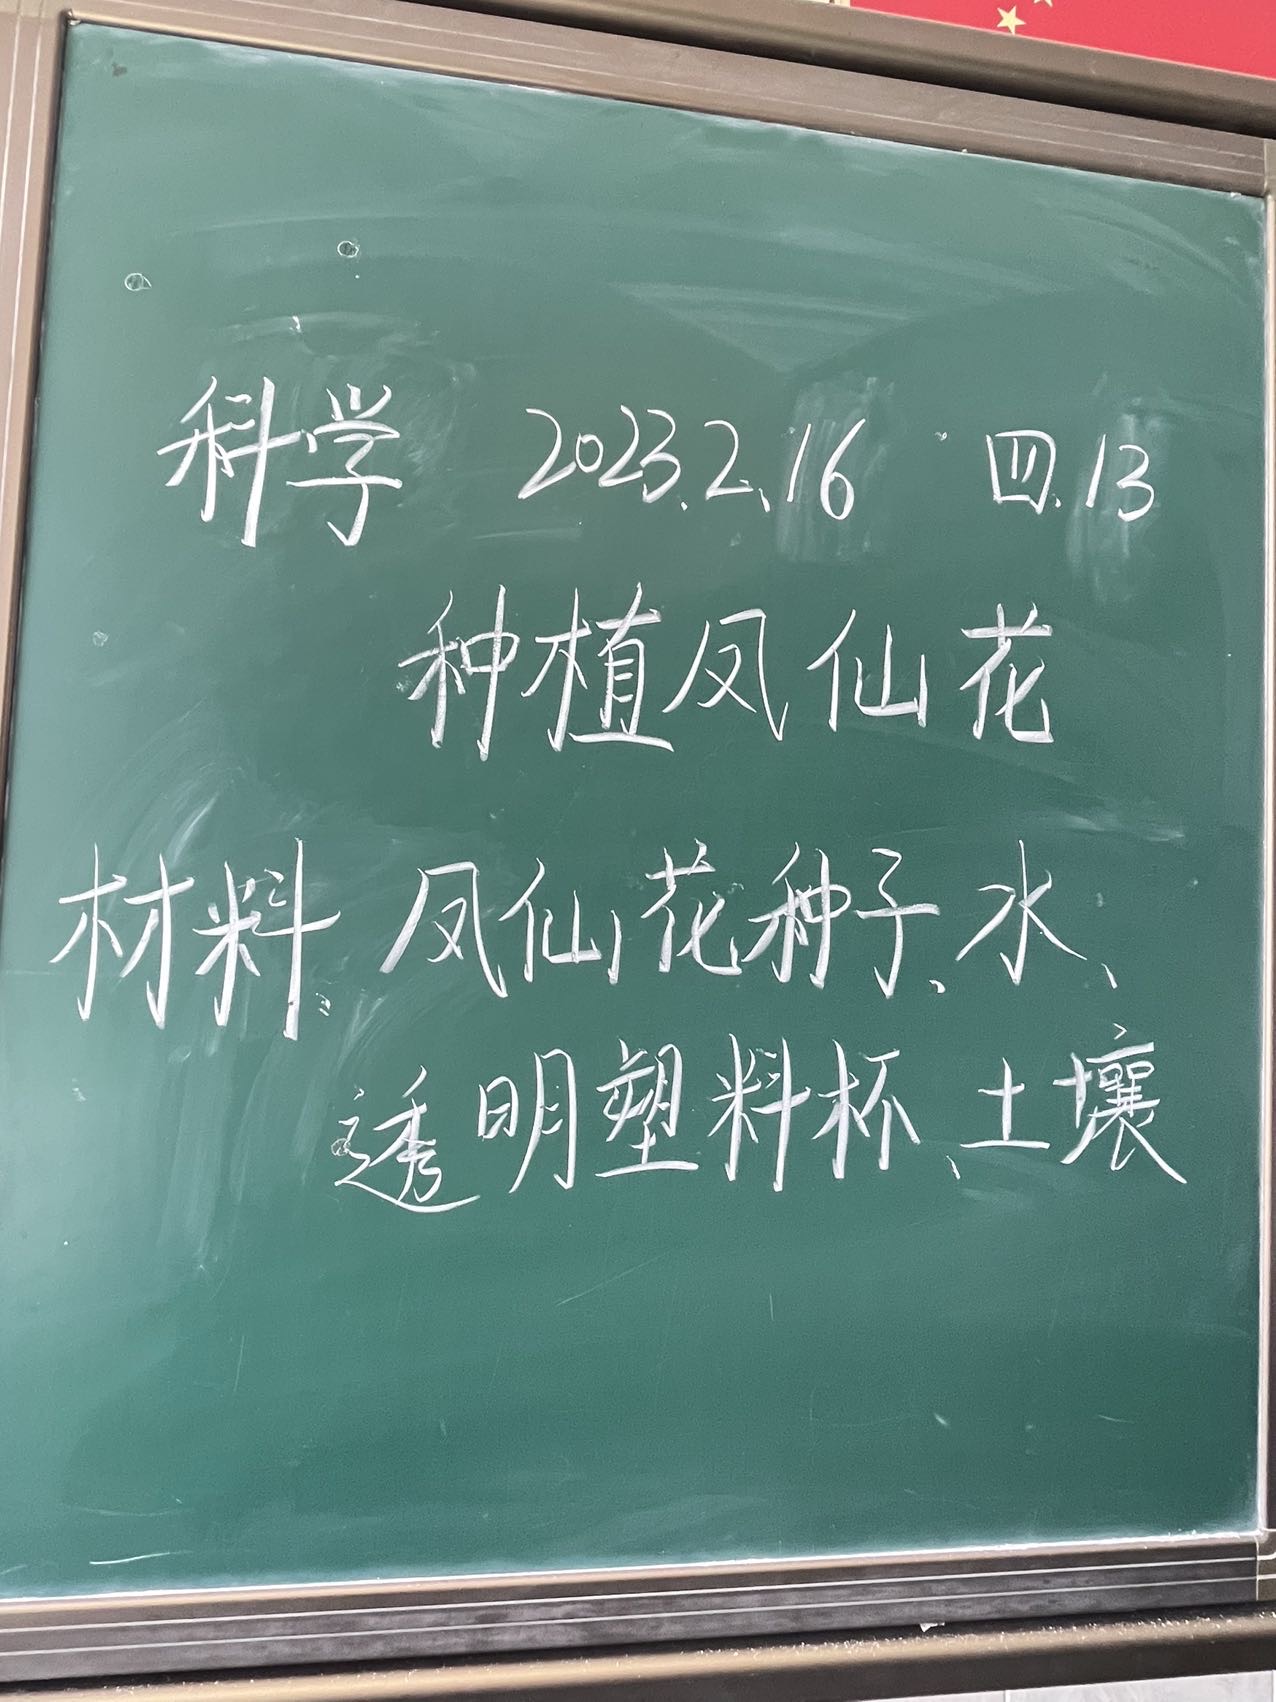 科学 2023.2.16 四.13
种植凤仙花
材料: 凤仙花种子、水、
透明塑料杯、土壤